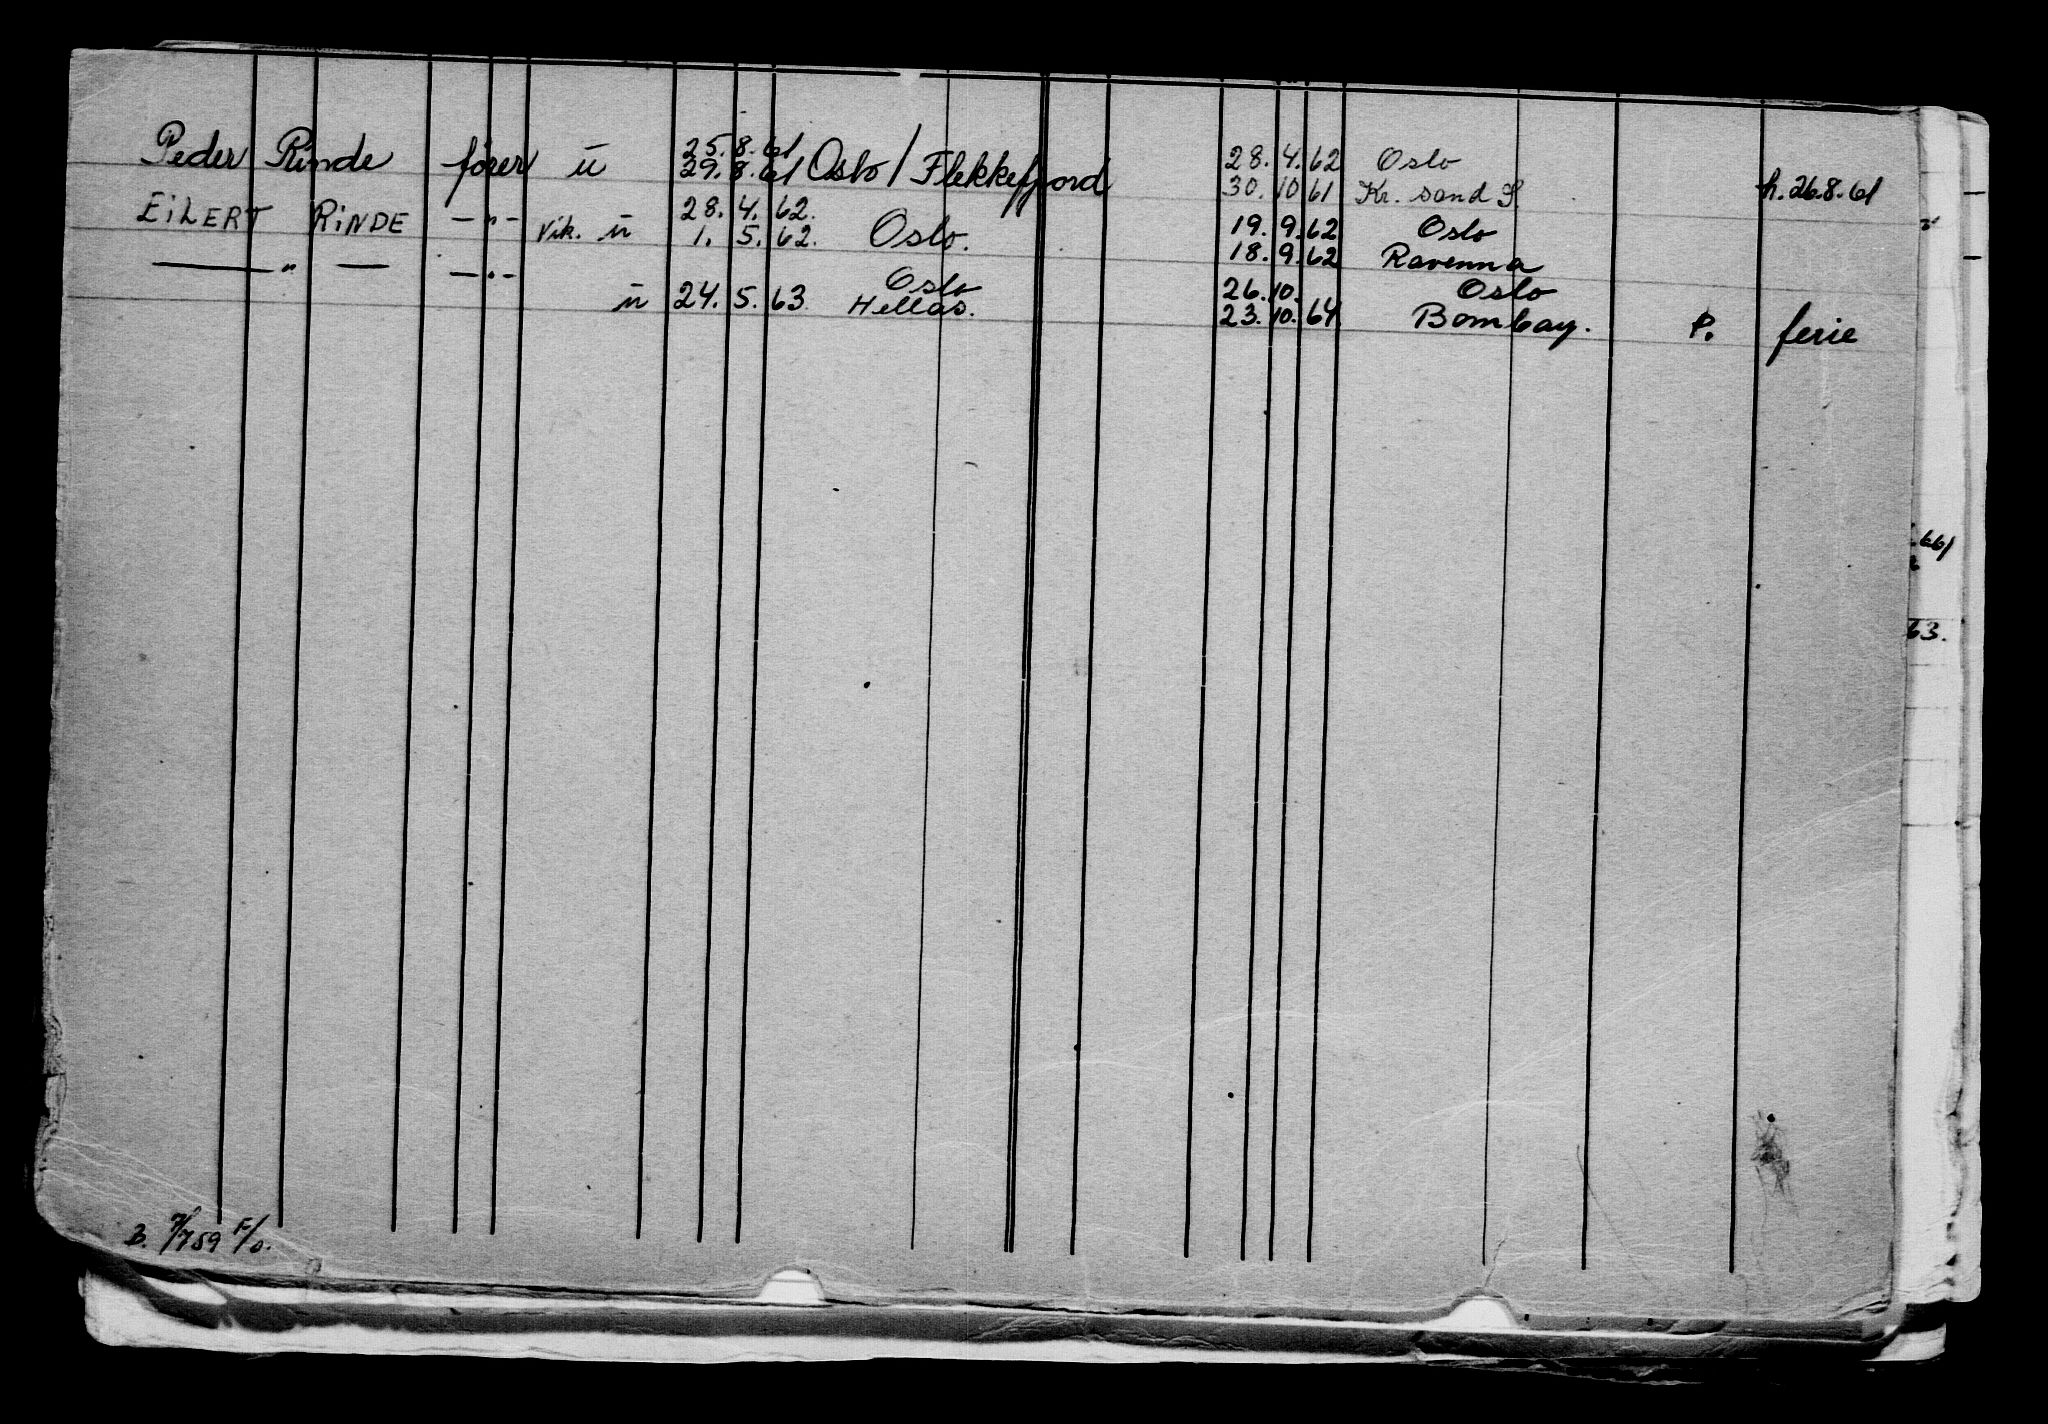 25. 8. 61 28. 4. 62 Oslo
Peder Rinde fører ū 29. 8. 61 Oslo / Flekkefjord 30. 10 61 Kr. sand S h. 26.8.61
28. 4. 62. 19. 9. 62 Oslo
EiLERT RiNDE —"— Vik. ū 1. 5. 62. Oslo. 18. 9. 62 Ravenna
Oslo 26. 10. Oslo
—"— —"— ū 24. 5. 63 Hellas. 23. 10. 64 Bombay. P. ferie
.66
63.
B. 7/759 F/o.